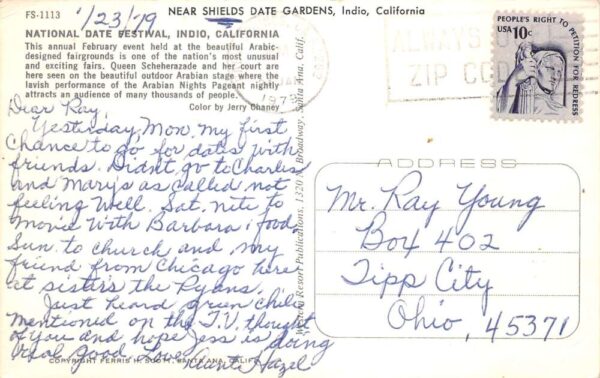 1/23/79
FS-1113
NEAR SHIELDS DATE GARDENS, Indio, California
NATIONAL DATE FESTIVAL, INDIO, CALIFORNIA
This annual February event held at the beautiful Arabic-
designed fairgrounds is one of the nation's most unusual
and exciting fairs. Queen Scheherazade and her court are
here seen on the beautiful outdoor Arabian stage where the
lavish performance of the Arabian Nights Pageant nightly
attracts an audience of many thousands of people.
Color by Jerry Chaney
Dear Ray,
Yesterday Mon. my first
chance to go for dates with
friends. Didn't go to Charles
and Marys as called not
feeling well. Sat. nite to
Movie with Barbara & food,
Sun to church and my
friend from Chicago here
at sisters the Ryans.
Just heard green chili
mentioned on the T.V. thought
of you and hope Jess is doing
real good. Love, Aunt Hazel
COPYRIGHT FERRIS H. SCOTT, SANTA ANA, CALIF.
Western Resort Publications, 1320 N. Broadway, Santa Ana, Calif.
1979
ALWAYS USE
ZIP CODE
PEOPLE'S RIGHT TO PETITION FOR REDRESS
USA 10c
ADDRESS
Mr. Ray Young
Box 402
Tipp City
Ohio, 45371